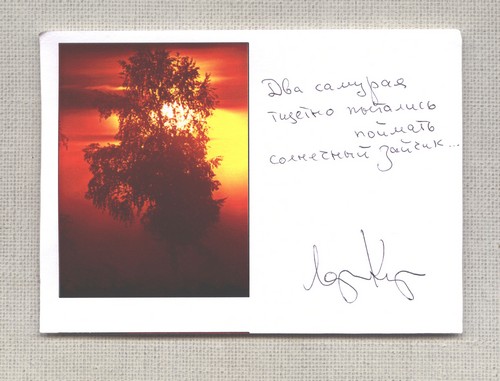 Два самурая
тщетно пытались
поймать
солнечный зайчик...